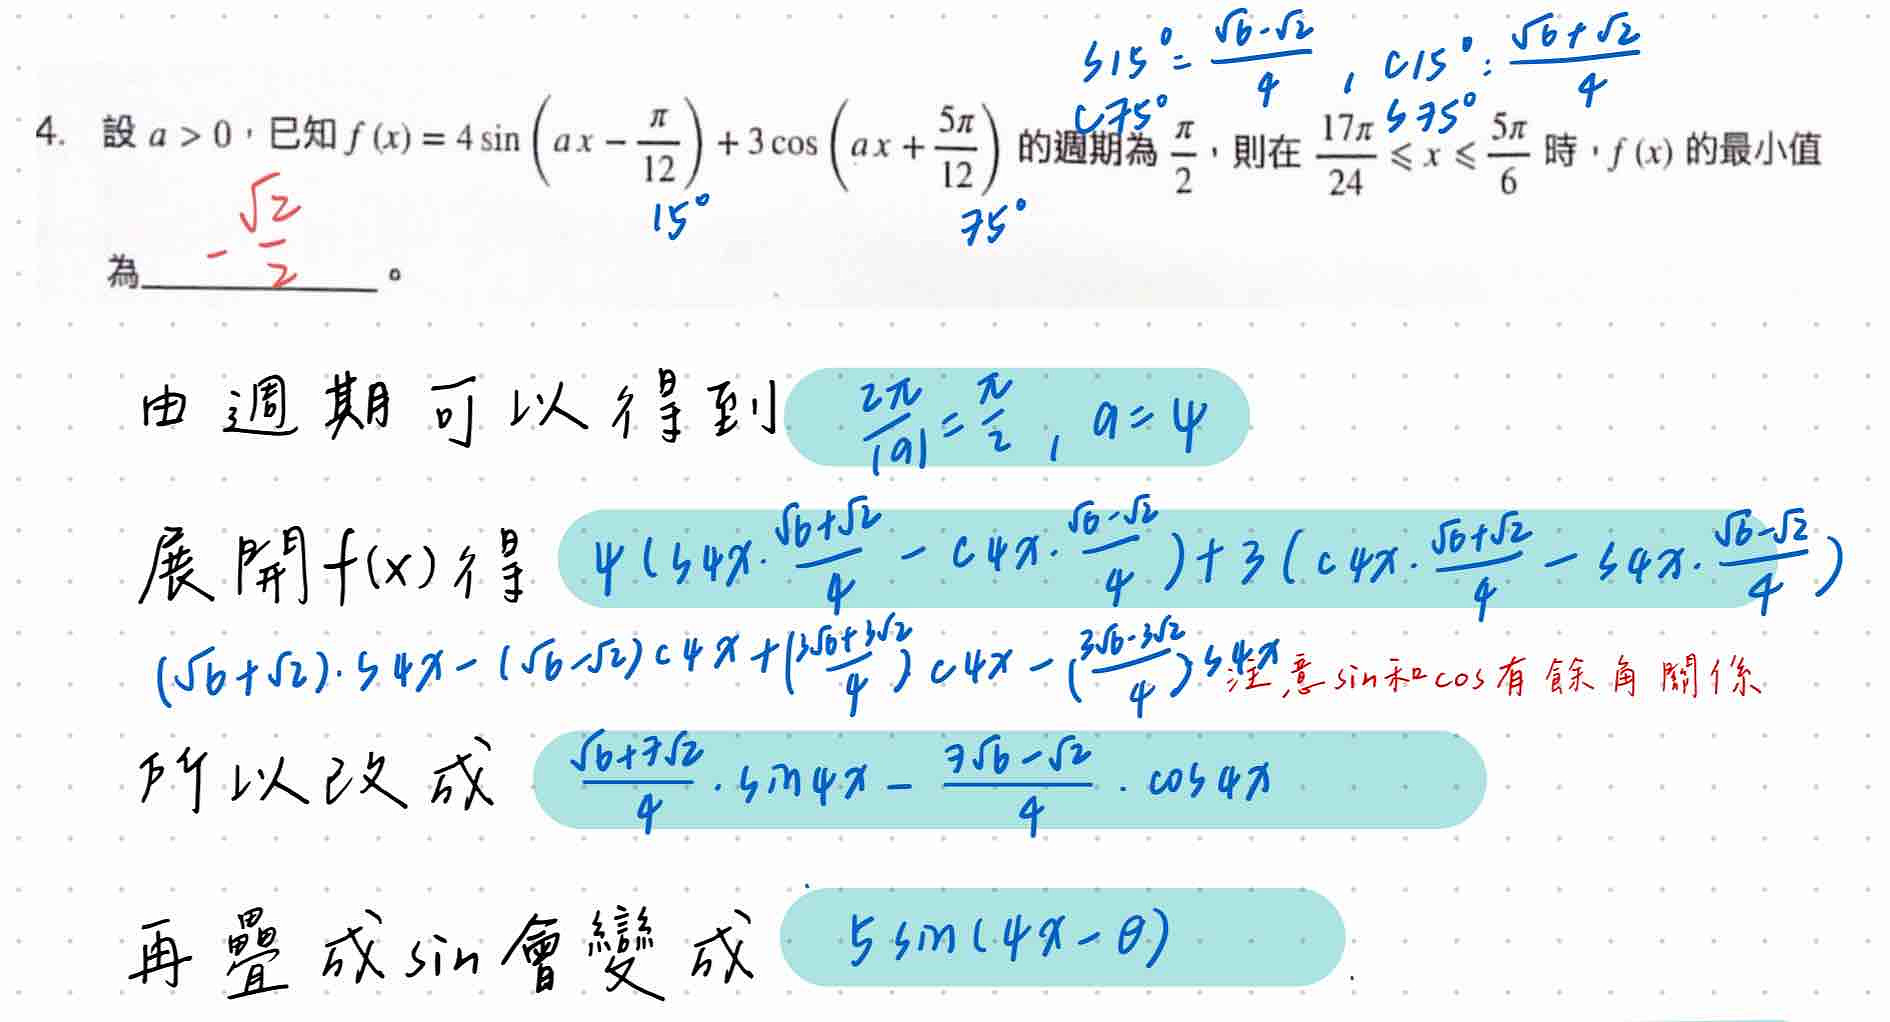 s15° = (√6-√2)/4 , c15° : (√6+√2)/4
c75° s75°
4. 設 a > 0，已知 f (x) = 4 sin (ax − π/12) + 3 cos (ax + 5π/12) 的週期為 π/2，則在 17π/24 ⩽ x ⩽ 5π/6 時，f (x) 的最小值
15° 75°
為 -√2/2 。
由週期可以得到 2π/|a| = π/2 , a = 4
展開f(x)得 4(s4x·(√6+√2)/4 - c4x·(√6-√2)/4) + 3(c4x·(√6+√2)/4 - s4x·(√6-√2)/4)
(√6+√2)·s4x - (√6-√2)c4x + ((3√6+3√2)/4)c4x - ((3√6-3√2)/4)s4x 注意sin和cos有餘角關係
所以改成 (√6+7√2)/4 · sin4x - (7√6-√2)/4 · cos4x
再疊成sin會變成 5sin(4x-θ)